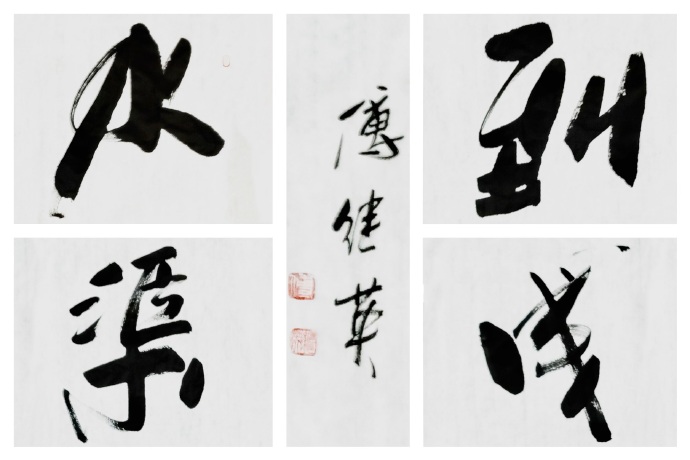 水
到
渠
成
傅继英